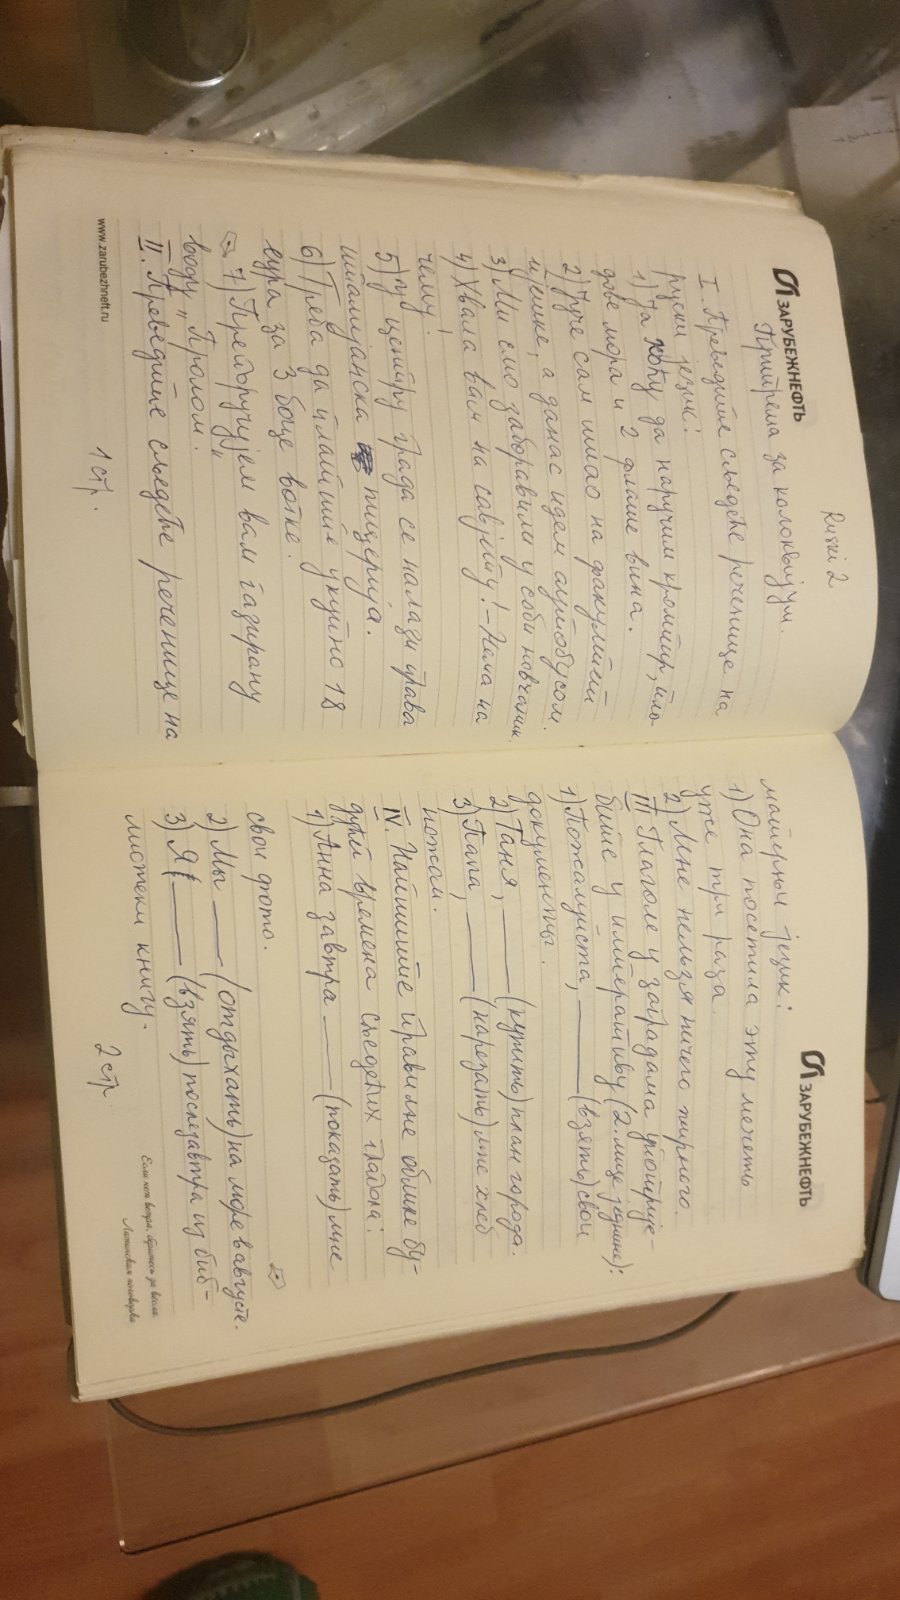 Ruski 2
ЗАРУБЕЖНЕФТЬ
Припрема за колоквијум.
I. Преведите сљедеће реченице на
руски језик:
1) Ја хоћу да наручим кромпир,
две мора и 2 флаше вина.
2) Јуче сам ишао на факултет
пјешке, а данас идем аутобусом.
3) Ми смо заборавили у соби новчаник.
4) Хвала вам на савјету! – Нема на
чему!
5) У центру града се налази права
италијанска пицерија.
6) Треба да платите укупно 18
еура за 3 боце вотке.
7) Препоручујем вам газирану
воду „Пролом“.
II. Преведите сљедеће реченице на
1 стр.
www.zarubezhneft.ru
ЗАРУБЕЖНЕФТЬ
матерњи језик:
1) Она посетила эту мечеть
уже три раза.
2) Мне нельзя ничего жирного.
III Глаголе у заградама употрије-
бите у императиву (2. лице једнине):
1) Пожалуйста, ___ (взять) свои
документы.
2) Таня, ___ (купить) план города.
3) Папа, ___ (нарезать) мне хлеб
ножом.
IV. Напишите правилне облике бу-
дућег времена сљедећих глагола:
1) Анна завтра ___ (показать) мне
свои фото.
2) Мы ___ (отдыхать) на море в августе.
3) Я ___ (взять) послезавтра из биб-
лиотеки книгу.
2 стр.
Если нет ветра, беритесь за весла.
Латинская поговорка